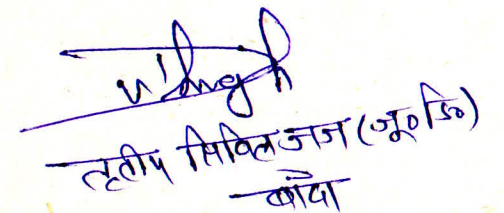 तृतीय सिविल जज (जू० डि०)
बाँदा